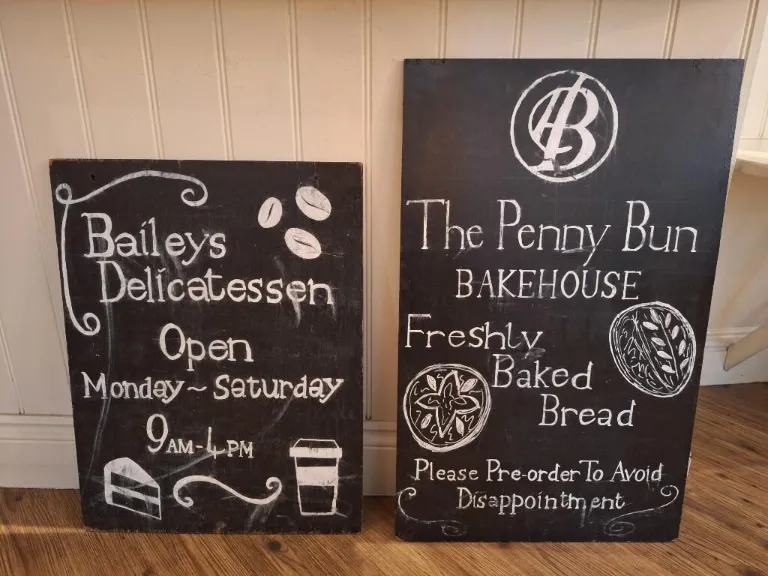 Baileys
Delicatessen
Open
Monday ~ Saturday
9AM-4PM
AB
The Penny Bun
BAKEHOUSE
Freshly
Baked
Bread
Please Pre-order To Avoid
Disappointment